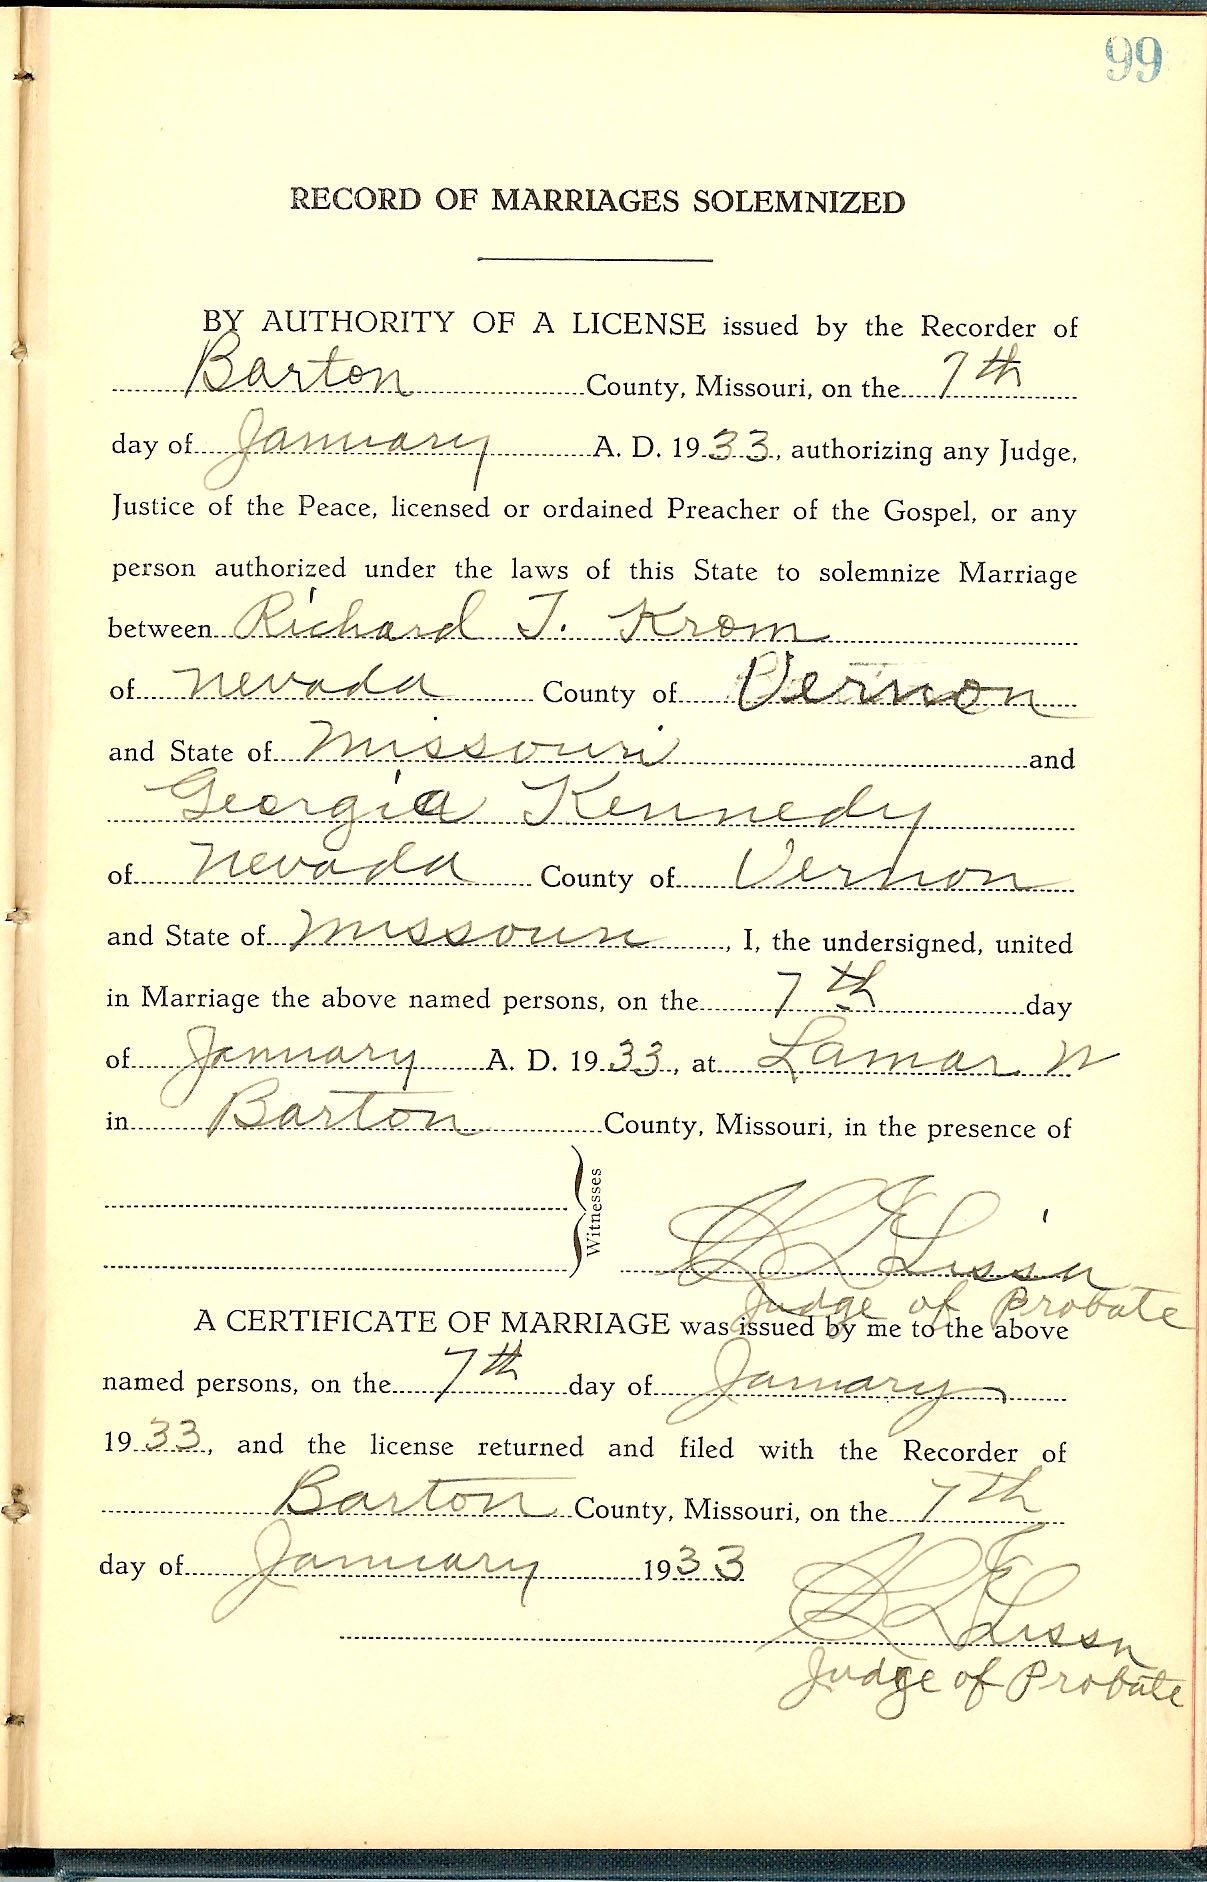 99
RECORD OF MARRIAGES SOLEMNIZED
BY AUTHORITY OF A LICENSE issued by the Recorder of
Barton County, Missouri, on the 7th
day of January A. D. 1933, authorizing any Judge,
Justice of the Peace, licensed or ordained Preacher of the Gospel, or any
person authorized under the laws of this State to solemnize Marriage
between Richard T. Krom
of Nevada County of Vernon
and State of Missouri and
Georgia Kennedy
of Nevada County of Vernon
and State of Missouri, I, the undersigned, united
in Marriage the above named persons, on the 7th day
of January A. D. 1933, at Lamar
in Barton County, Missouri, in the presence of
Witnesses
Judge of Probate
A CERTIFICATE OF MARRIAGE was issued by me to the above
named persons, on the 7th day of January
1933, and the license returned and filed with the Recorder of
Barton County, Missouri, on the 7th
day of January 1933
Judge of Probate